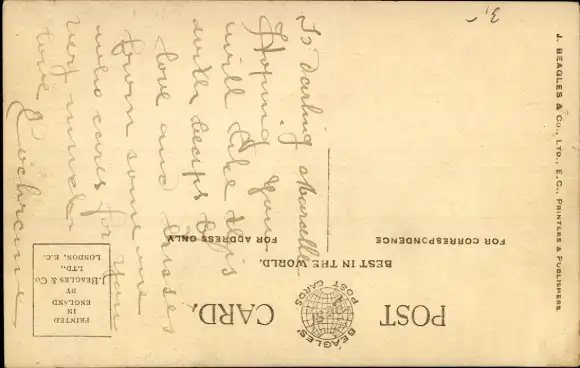 POST CARD.
BEAGLES'
POST CARDS
BEST IN THE WORLD.
FOR CORRESPONDENCE
FOR ADDRESS ONLY
PRINTED
IN
ENGLAND
BY
J. BEAGLES & Co
LTD.,
LONDON, E.C.
J. BEAGLES & Co., LTD., E.C., PRINTERS & PUBLISHERS.
3,-
To darling Marcelle
Hoping you
will like this
with heaps of
love and kisses
from some one
who cares for you
very much
love